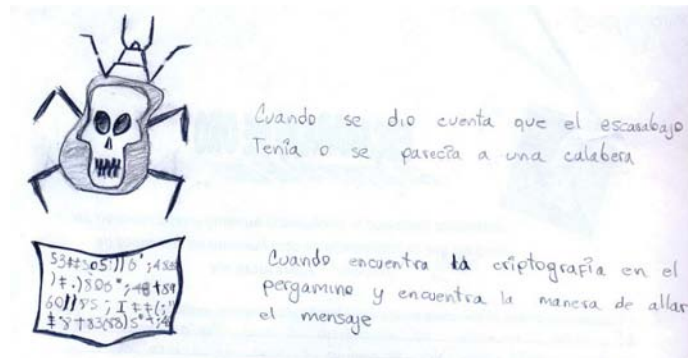 Cuando se dio cuenta que el escarabajo
Tenia o se parecia a una calabera
53‡‡305))6*;48
)‡.)806*;48†8
60))85;
Cuando encuentra la criptografia en el
pergamino y encuentra la manera de allar
el mensaje